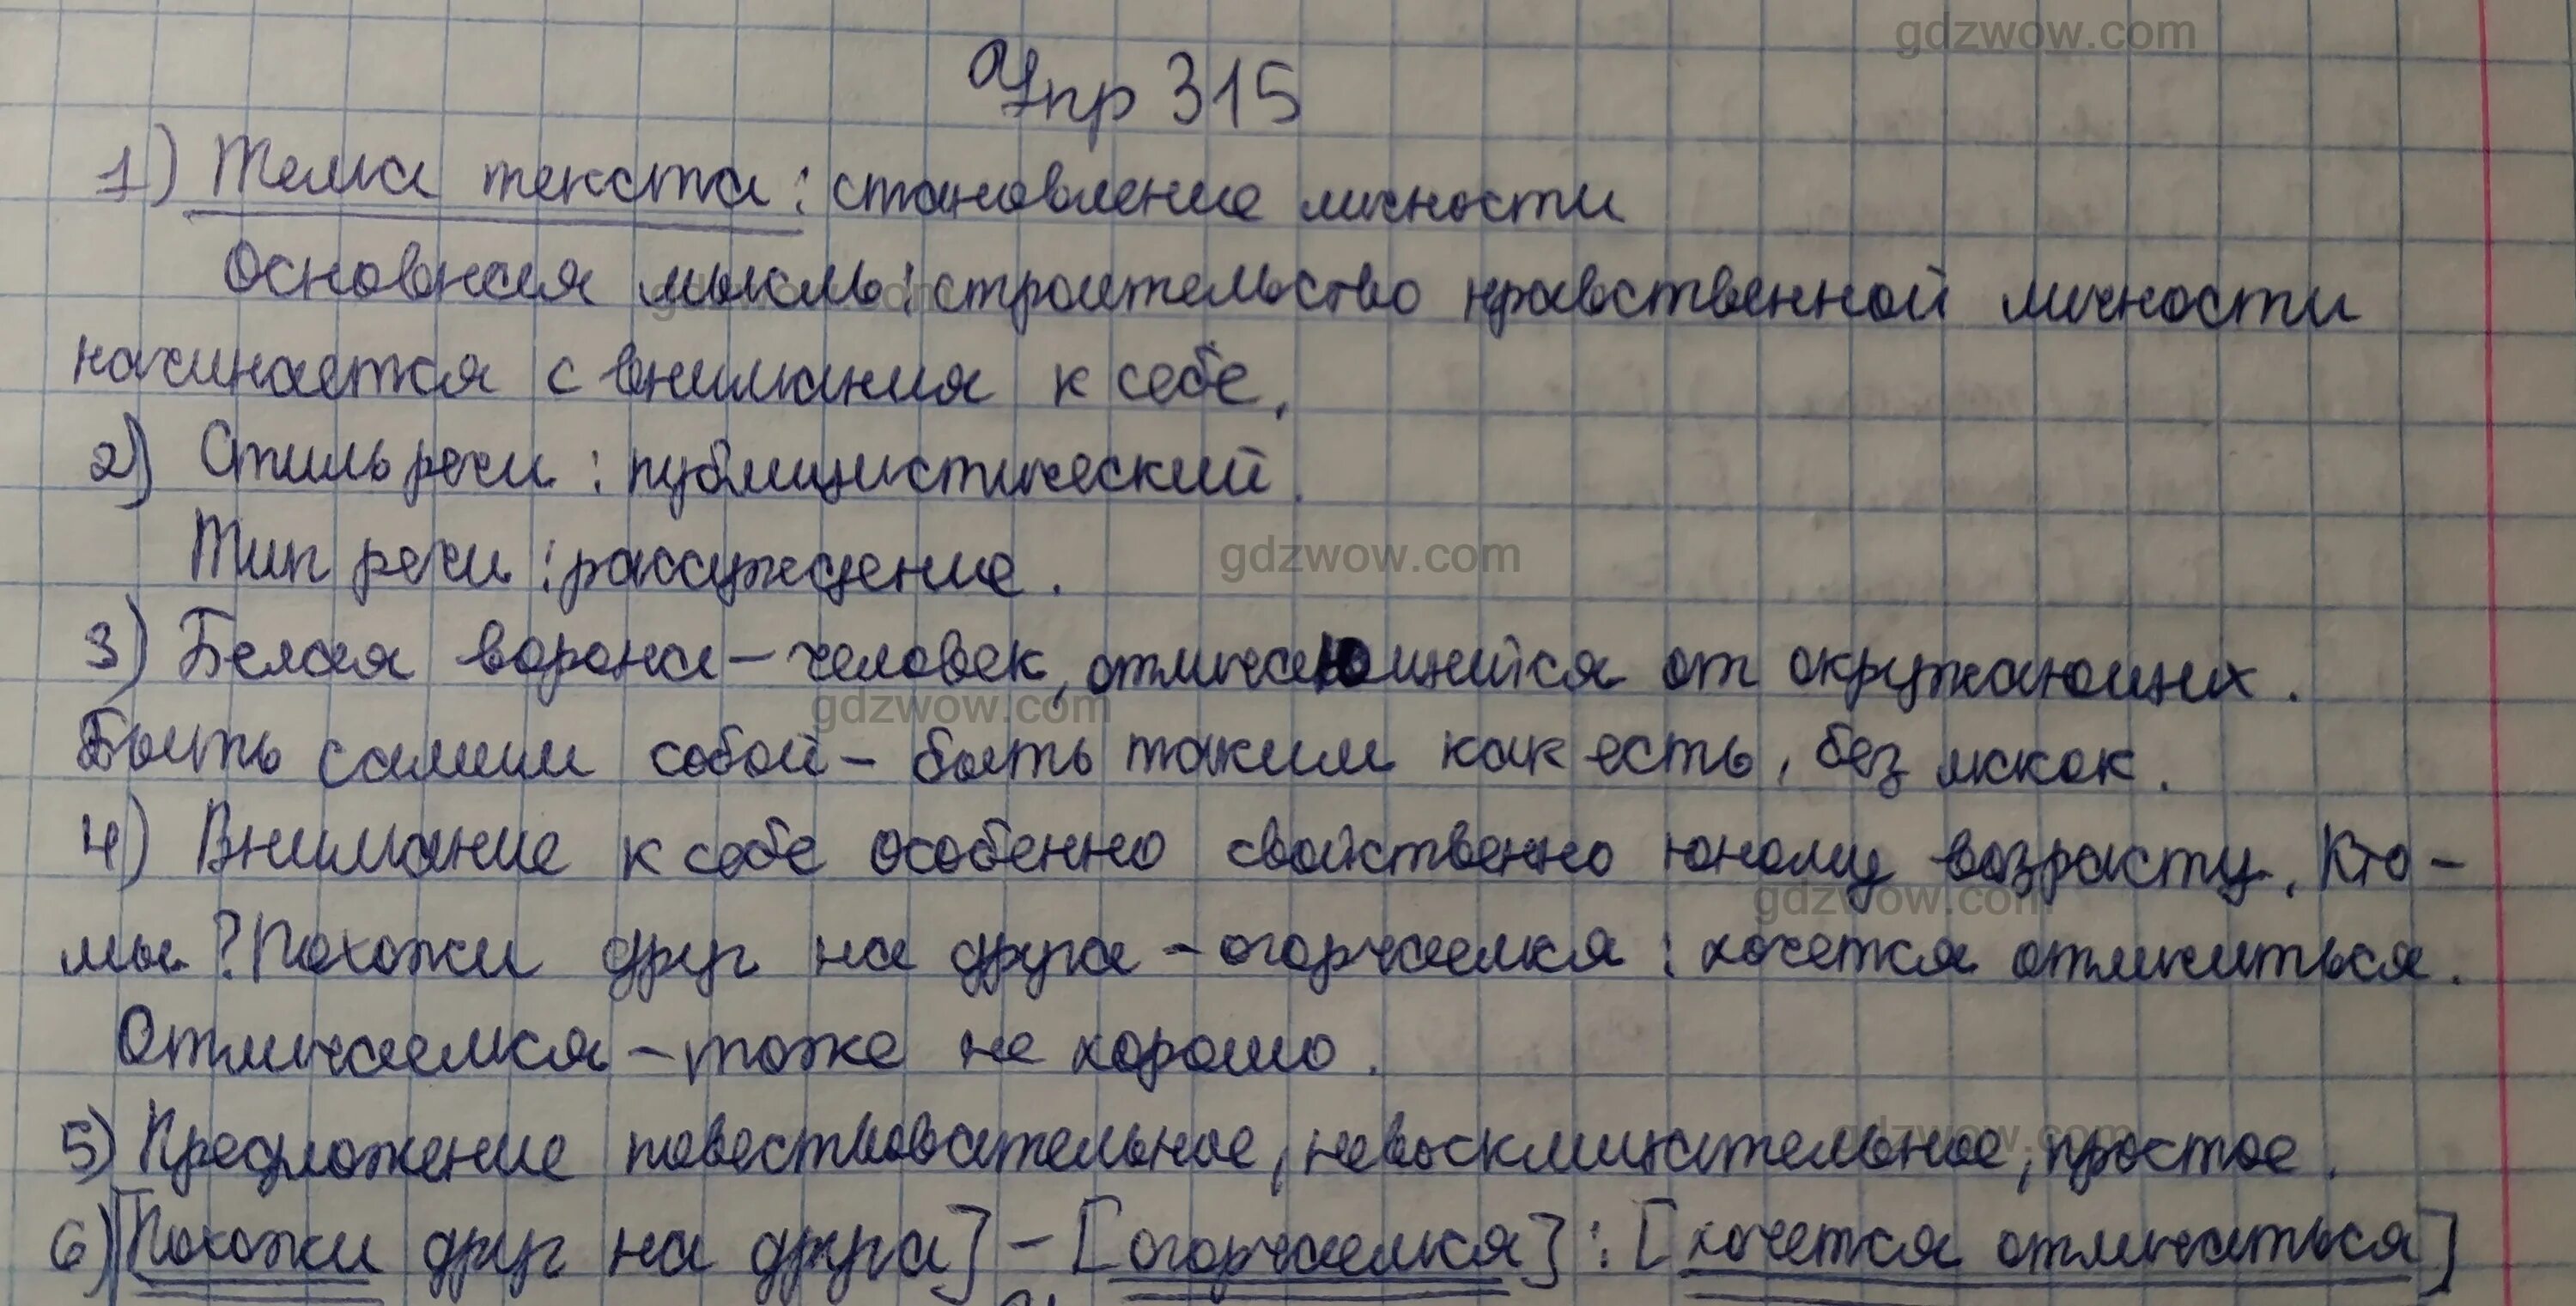 gdzwow.com
Упр 315
1) Тема текста: становление личности
Основная мысль: строительство нравственной личности
начинается с внимания к себе.
2) Стиль речи: публицистический.
Тип речи: рассуждение.
gdzwow.com
3) Белая ворона – человек, отличающийся от окружающих.
gdzwow.com
Быть самим собой – быть таким как есть, без масок.
4) Внимание к себе особенно свойственно юному возрасту. Кто –
gdzwow.com
мы? Похожи друг на друга – огорчаемся: хочется отличиться.
Отличаемся – тоже не хорошо.
5) Предложение повествовательное, невосклицательное, простое.
gdzwow.com
6) [Похожи друг на друга] – [огорчаемся]: [хочется отличаться]